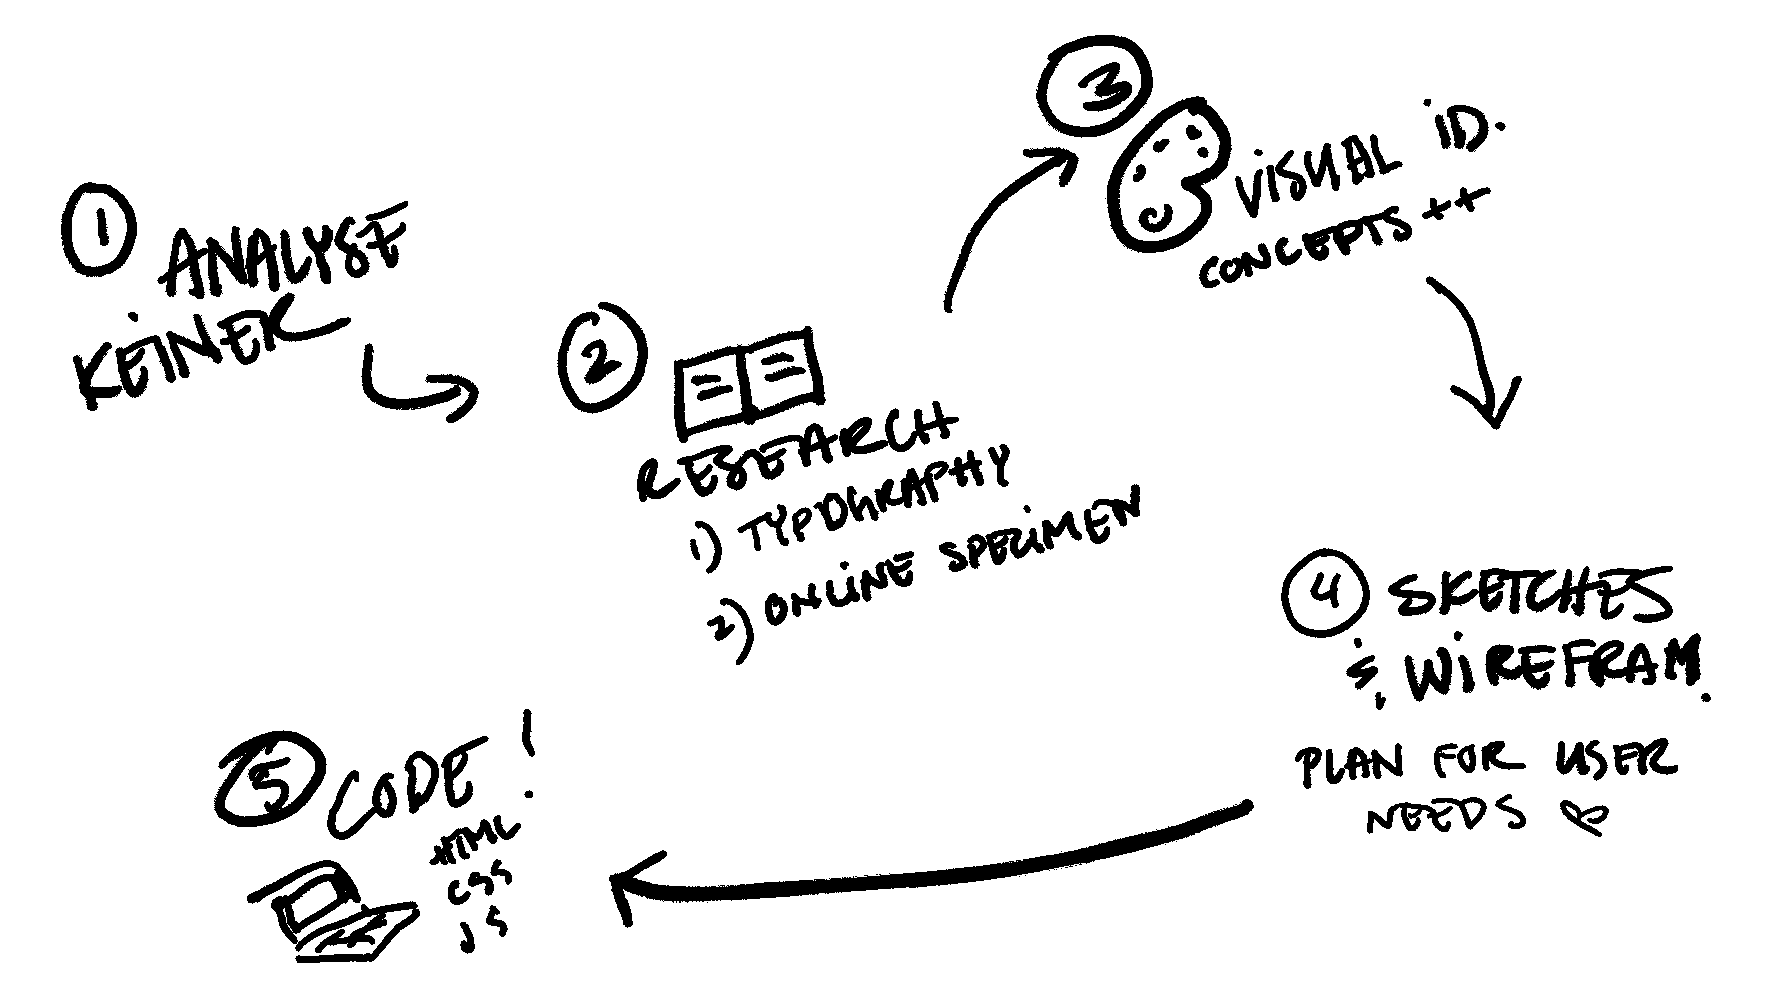 1 ANALYSE
KEINER
2 RESEARCH
1) TYPOGRAPHY
2) ONLINE SPECIMEN
3 VISUAL ID.
CONCEPTS ++
4 SKETCHES
& WIREFRAM.
PLAN FOR USER
NEEDS
5 CODE!
HTML
CSS
JS